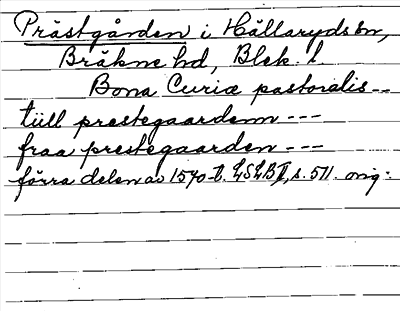 Prästgården i Hällaryds sn,
Bräkne hd, Blek. l.
Bona Curiæ pastoralis --
tiill prestegaardenn ---
fraa prestegaarden ---
förra delen av 1540-t. LSLBII, s. 511. orig.